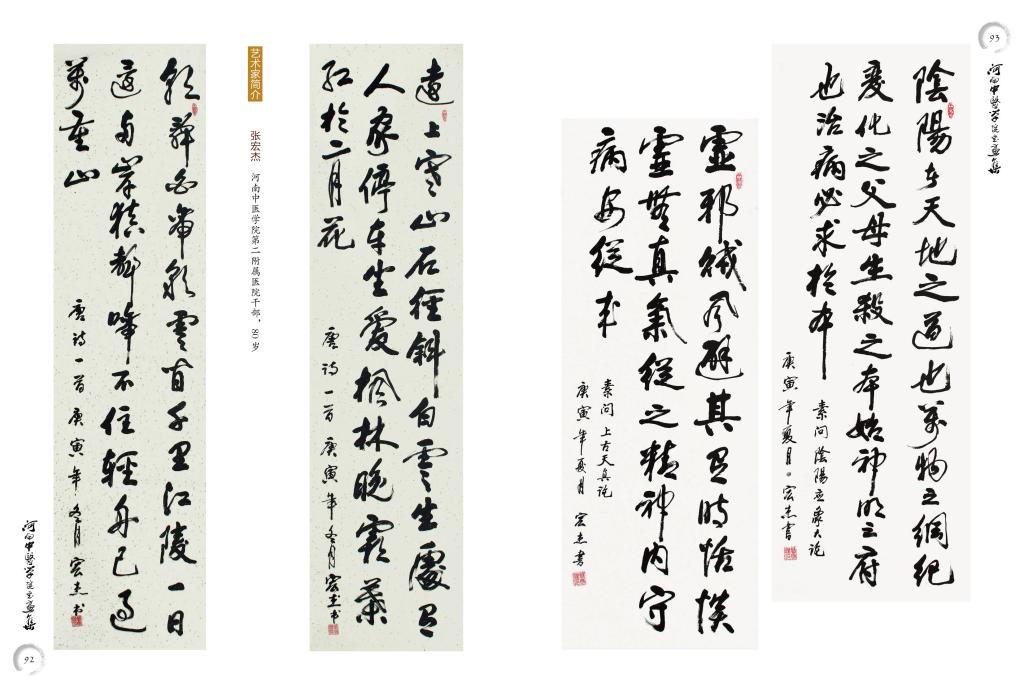 艺术家简介
张宏杰 河南中医学院第二附属医院干部，80岁
朝辞白帝彩雲间千里江陵一日
還两岸猿聲啼不住輕舟已过
萬重山
唐诗一首 庚寅年冬月 宏杰书
遠上寒山石徑斜白雲生處有
人家停車坐愛楓林晚霜葉
红於二月花
唐诗一首 庚寅年冬月 宏杰书
河南中醫学院书画集
92
陰陽者天地之道也萬物之綱纪
变化之父母生殺之本始神明之府
也治病必求於本
素问陰陽应象大论
庚寅年夏月 宏杰書
虚邪贼风避其有时恬惔
虚無真氣從之精神内守
病安從来
素问 上古天真论
庚寅年夏月 宏杰書
河南中醫学院书画集
93